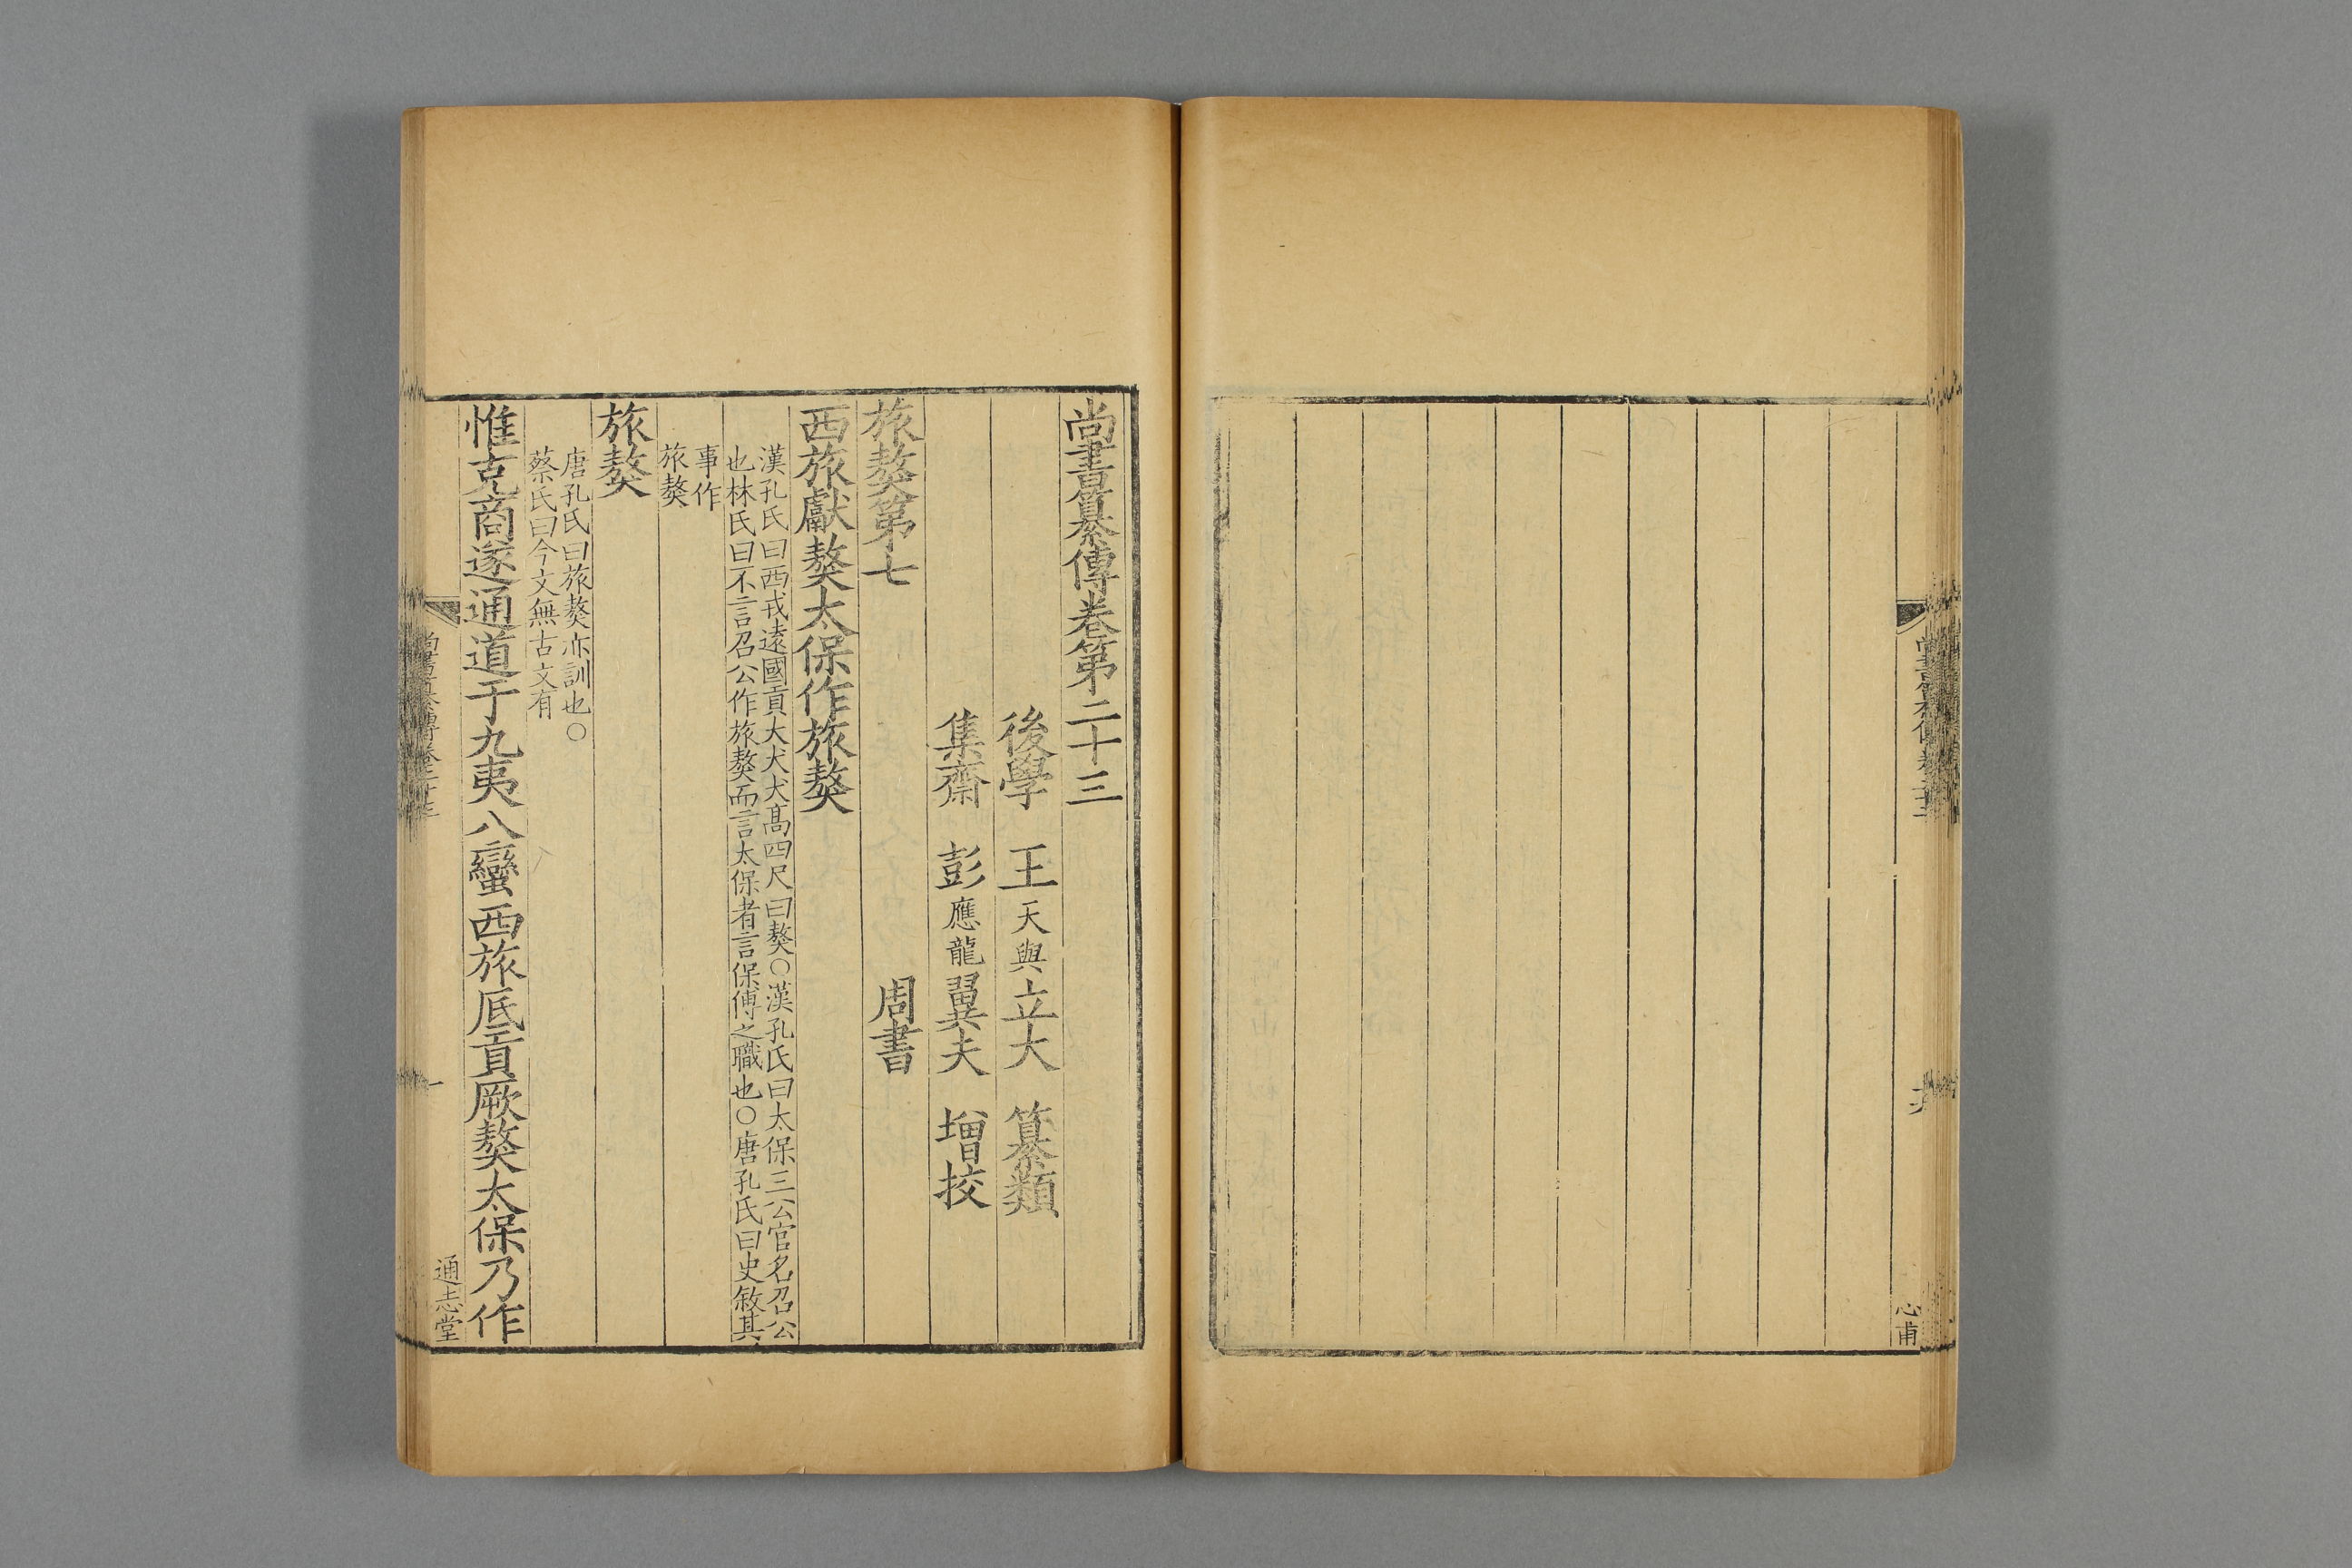 心甫
尚書纂傳卷第二十三
後學 王天與立大 纂類
集齋 彭應龍翼夫 增挍
旅獒第七 周書
西旅獻獒太保作旅獒
漢孔氏曰西戎遠國貢大犬犬高四尺曰獒○漢孔氏曰太保三公官名召公
也林氏曰不言召公作旅獒而言太保者言保傅之職也○唐孔氏曰史敘其
事作
旅獒
旅獒
唐孔氏曰旅獒亦訓也○
蔡氏曰今文無古文有
惟克商遂通道于九夷八蠻西旅厎貢厥獒太保乃作
一
通志堂